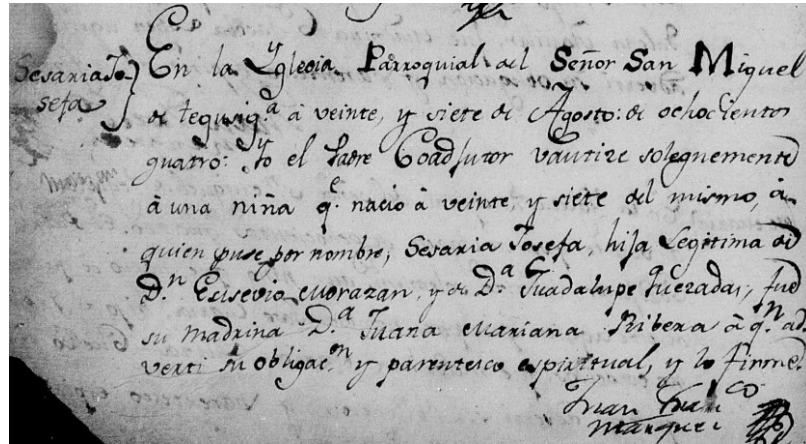 Sesaria Jo-
sefa
En la Yglecia Parroquial del Señor San Miguel
de tegusig.a à veinte, y siete de Agosto: de ochocientos
quatro: Yo el Padre Coadjutor vautize solegnemente
à una niña q.e nacio à veinte, y siete del mismo, à
quien puse por nombre, Sesaria Josefa, hija Legitima de
D.n Eusevio Morazan, y de D.a Guadalupe Quezada, fue
su madrina D.a Juana Mariana Ribera à q.n ad
verti su obligac.n y parentesco espiritual, y lo firmé.
Juan Fran.co
Marquez